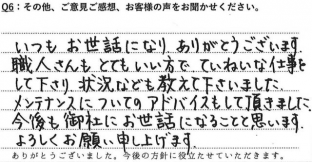 Q6：その他、ご意見ご感想、お客様の声をお聞かせください。
いつもお世話になり、ありがとうございます。
職人さんもとてもいい方で、ていねいな仕事を
して下さり、状況なども教えて下さいました。
メンテナンスについてのアドバイスもして頂きました。
今後も御社にお世話になることと思います。
よろしくお願い申し上げます。
ありがとうございました。今後の方針に役立たせていただきます。